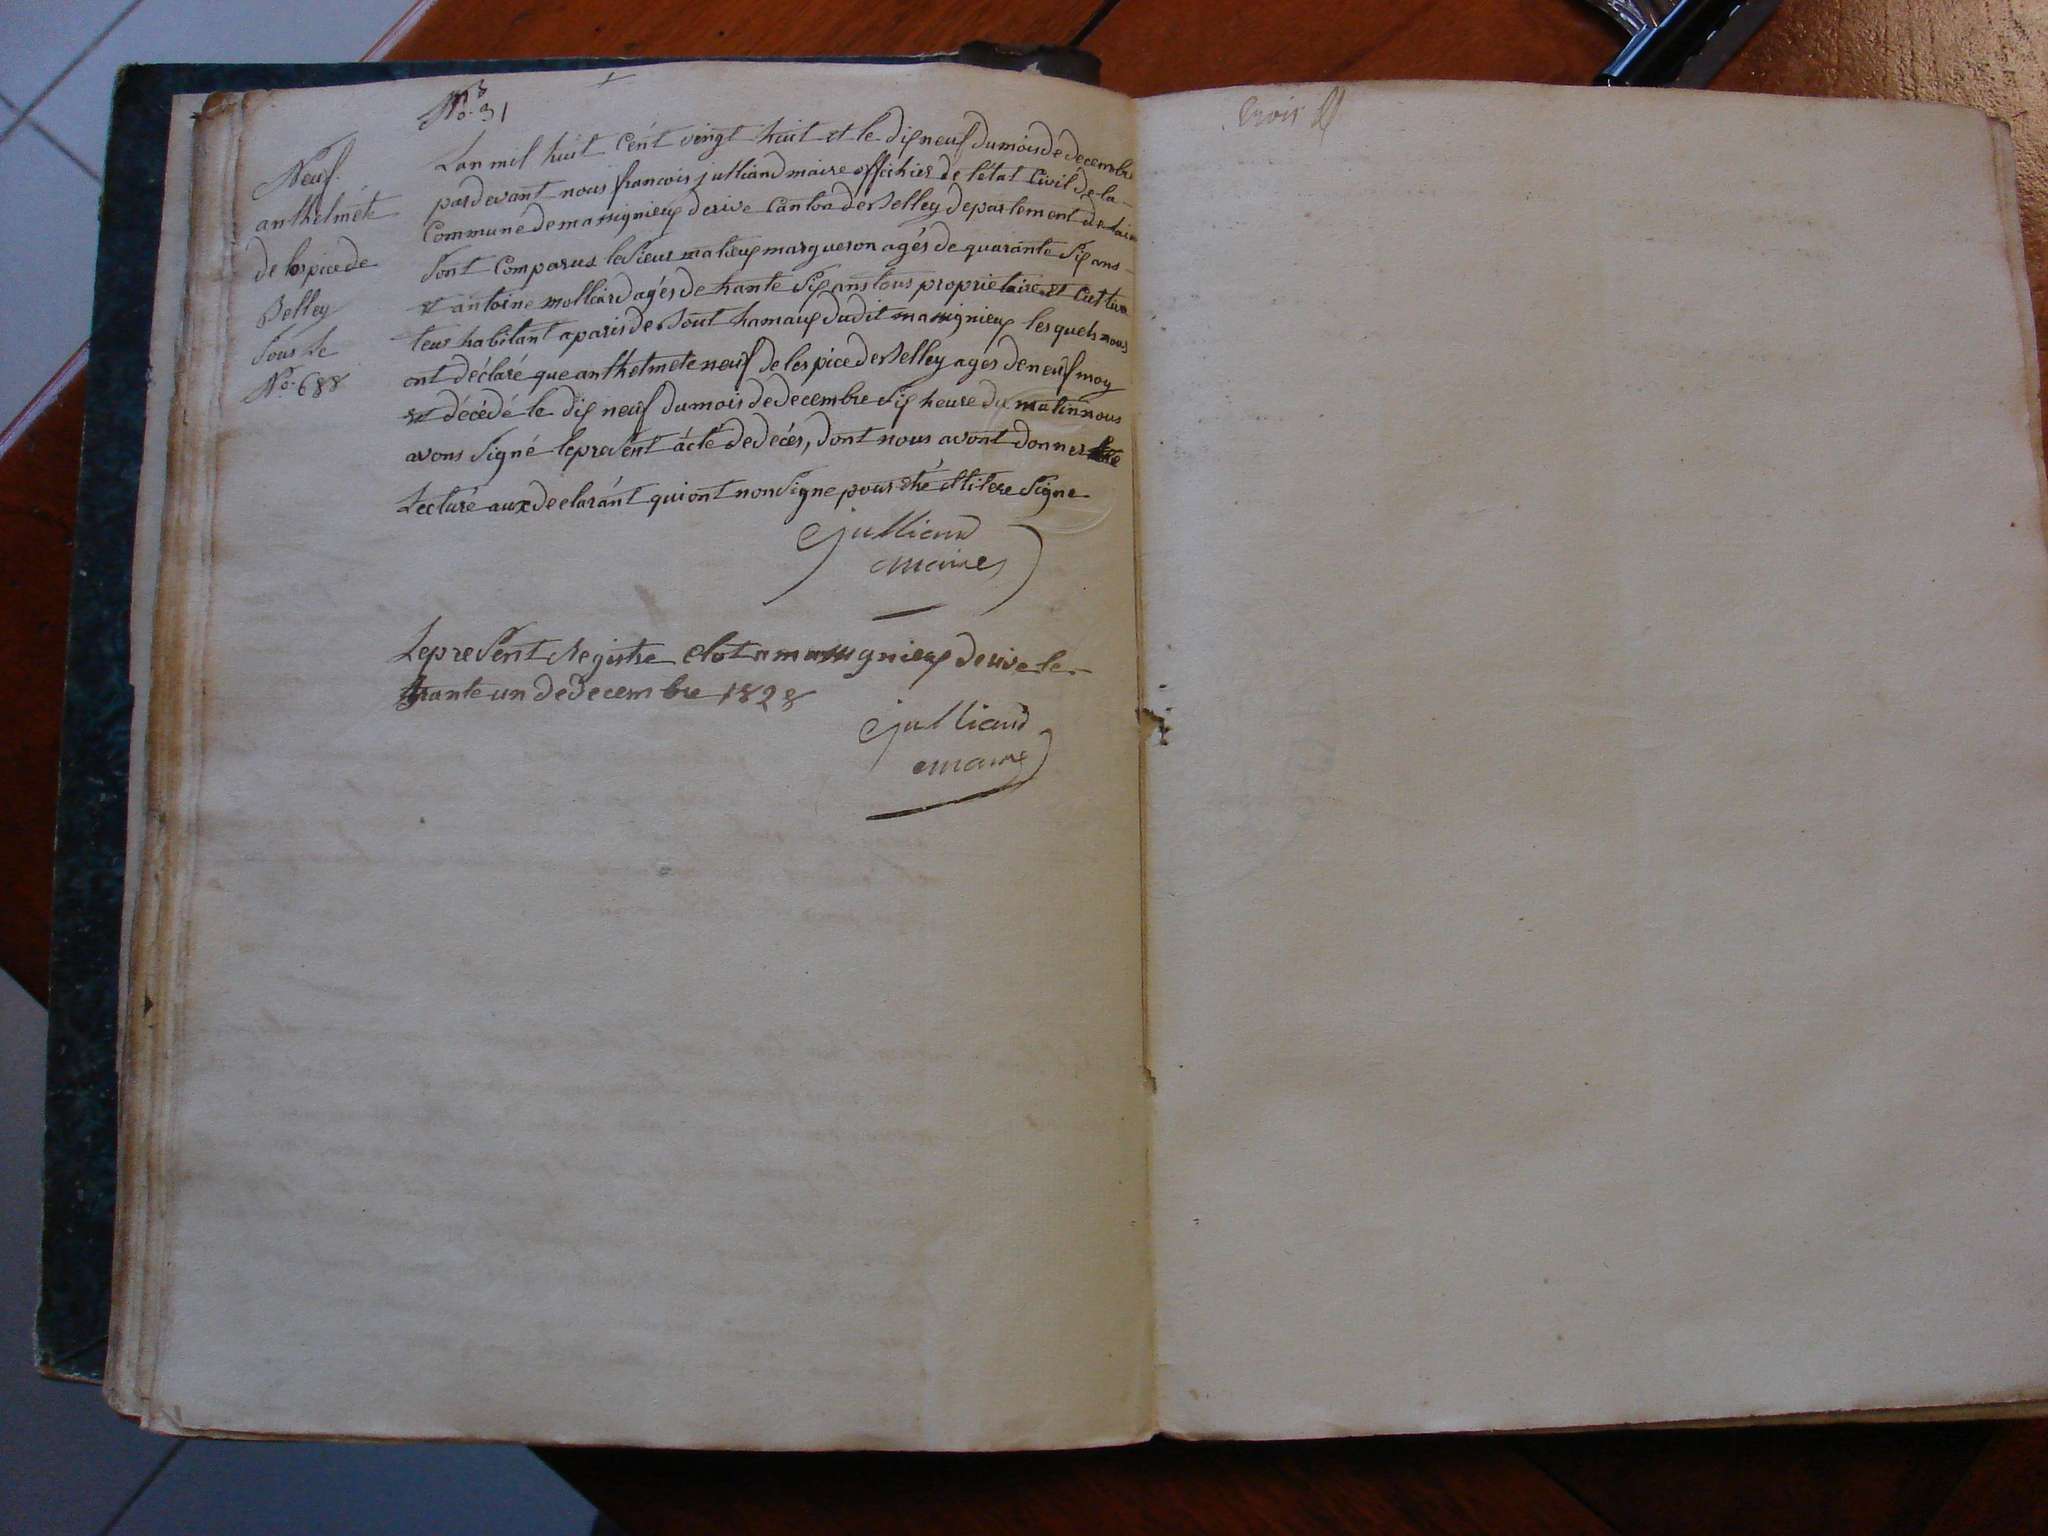 No. 31
Neuf.
anthelméte
de lospice de
Belley
Sous Le
No. 688
Lan mil huit Cént vingt huit et le dix neuf du mois dé décembre
par devant nous francois julliand maire offichier de létat Civil de la
Commune de massignieux derive Canton de Belley departement de lain
Sont Comparus le Sieur matieux margueron agés de quarante Six ans
et antoine molliard agés de trante Six ans tous proprietaire et Cultiva
teur habitant a paris de Sout hamaux dudit massignieux les quels nous
ont déclaré que anthelmete neuf de lespice de Belley agés de neuf moy
et décédé le dix neuf du mois de decembre Six heure du matin nous
avons Signé le present ácte de décés, dont nous avont donner
Lecture aux declaránt qui ont non Signe pour étré illitere Signe
julliand
maire
Le present Registre clot a massignieux derive le
trante un de decembre 1828
julliand
maire